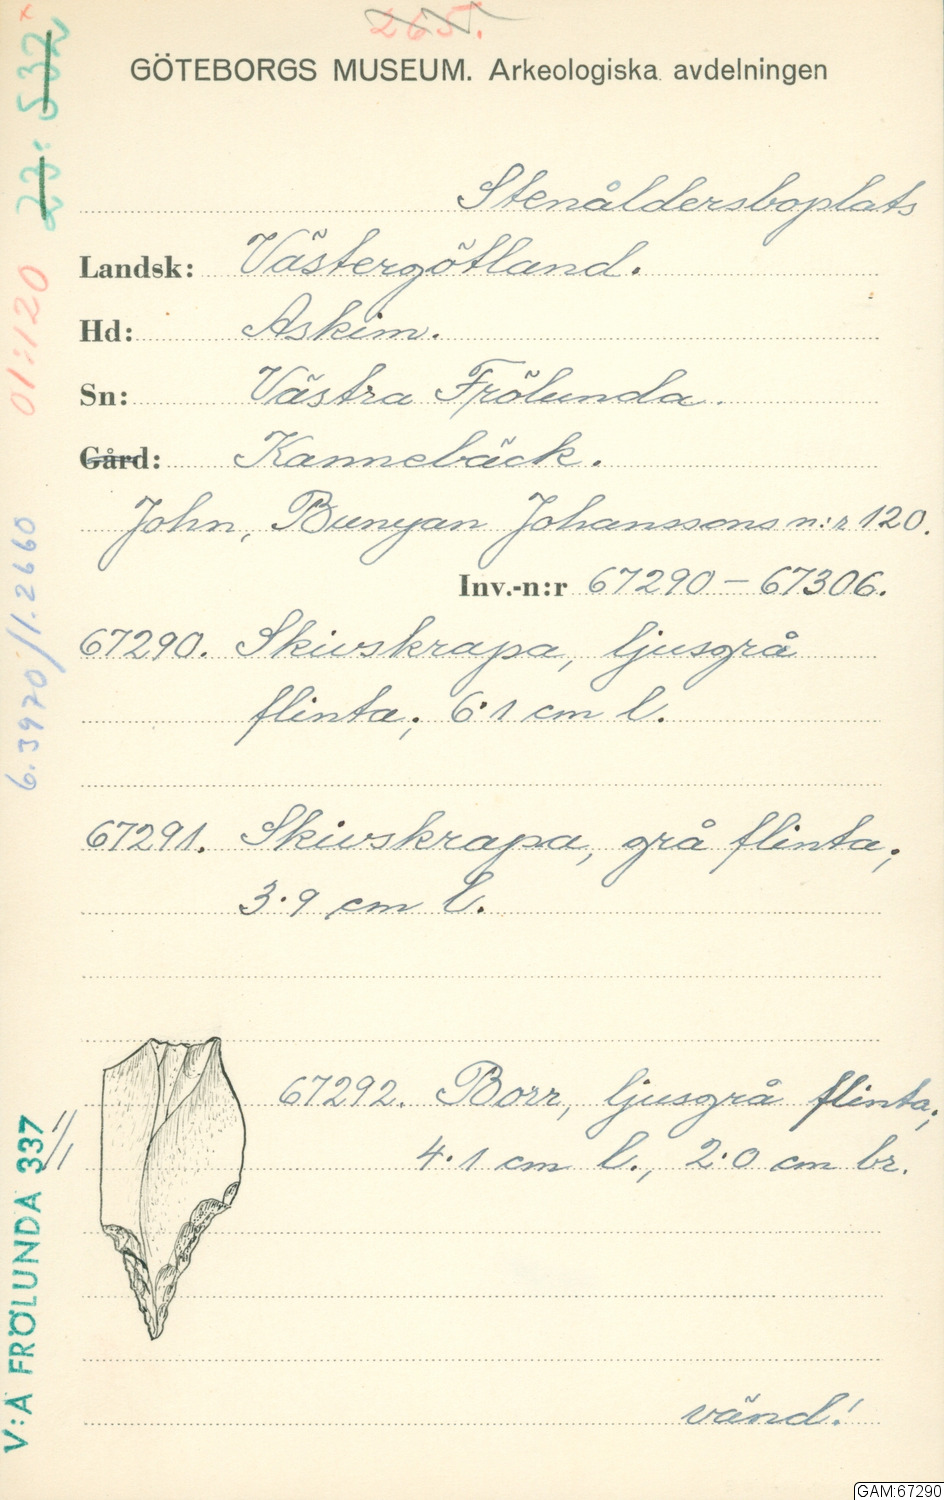 265.
GÖTEBORGS MUSEUM. Arkeologiska avdelningen
Stenåldersboplats
Landsk: Västergötland.
Hd: Askim.
Sn: Västra Frölunda.
Gård: Kannebäck.
John, Bunyan Johanssons n:r 120.
Inv.-n:r 67290 – 67306.
67290. Skivskrapa, ljusgrå
flinta; 6·1 cm l.
67291. Skivskrapa, grå flinta;
3·9 cm l.
67292. Borr, ljusgrå flinta;
4·1 cm l., 2·0 cm br.
1/1
vänd!
23: 532 x
01:120
6.3970/1.2660
V:A FRÖLUNDA 337
GAM:67290